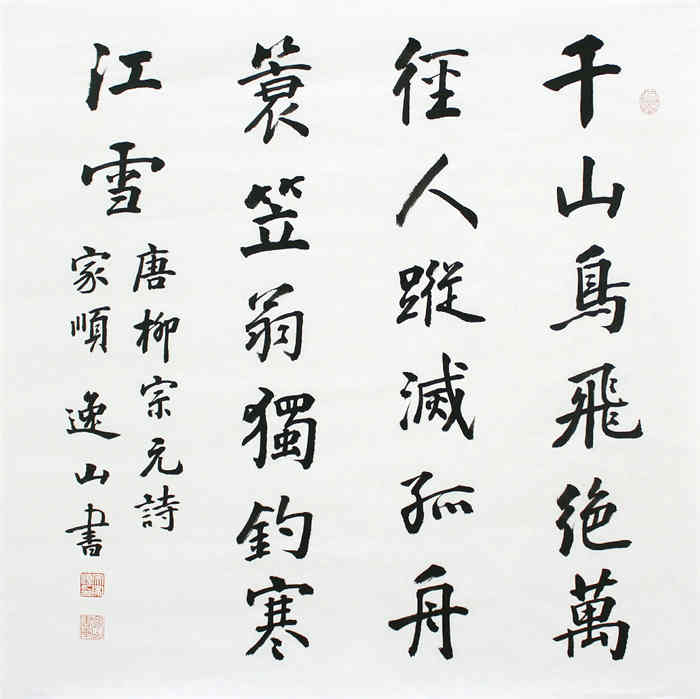 千山鳥飛絶萬
徑人蹤滅孤舟
簑笠翁獨釣寒
江雪
唐柳宗元詩
家順逸山書